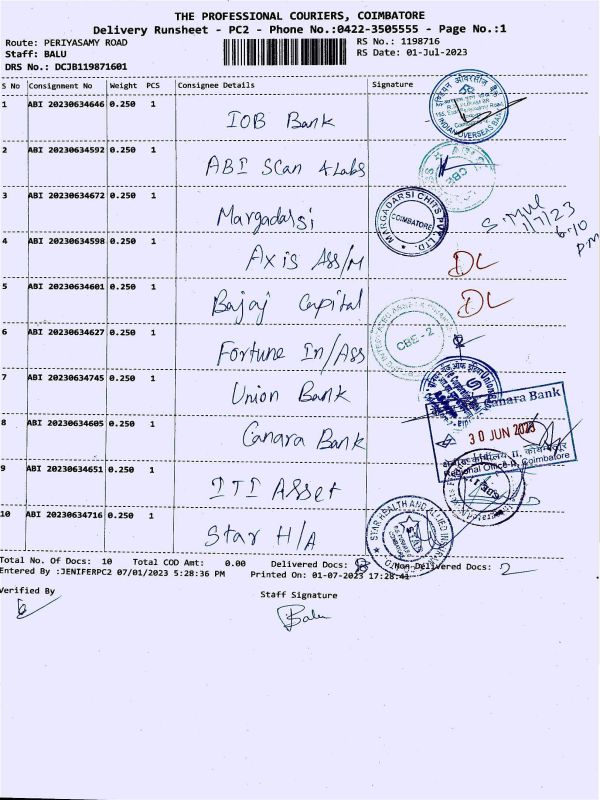 THE PROFESSIONAL COURIERS, COIMBATORE
Delivery Runsheet - PC2 - Phone No.:0422-3505555 - Page No.:1
Route: PERIYASAMY ROAD RS No.: 1198716
Staff: BALU RS Date: 01-Jul-2023
DRS No.: DCJB119871601
S No Consignment No Weight PCS Consignee Details Signature
1 ABI 20230634646 0.250 1 IOB Bank
INDIAN OVERSEAS BANK
2 ABI 20230634592 0.250 1 ABI Scan & Labs
CBE
3 ABI 20230634672 0.250 1 Margadarsi
MARGADARSI CHITS PVT. LTD.
COIMBATORE
S. Mul
1/7/23
6.10
P.M
4 ABI 20230634598 0.250 1 Axis Ass/M DL
5 ABI 20230634601 0.250 1 Bajaj Capital DL
6 ABI 20230634627 0.250 1 Fortune In/Ass
CBE - 2
7 ABI 20230634745 0.250 1 Union Bank
8 ABI 20230634605 0.250 1 Canara Bank
Canara Bank
30 JUN 2023
Regional Office-II, Coimbatore
9 ABI 20230634651 0.250 1 ITI Asset
10 ABI 20230634716 0.250 1 Star H/A
STAR HEALTH AND ALLIED
Total No. of Docs: 10 Total COD Amt: 0.00 Delivered Docs: 8 Non Delivered Docs: 2
Entered By :JENIFERPC2 07/01/2023 5:28:36 PM Printed On: 01-07-2023 17:28:41
Verified By Staff Signature
Balu